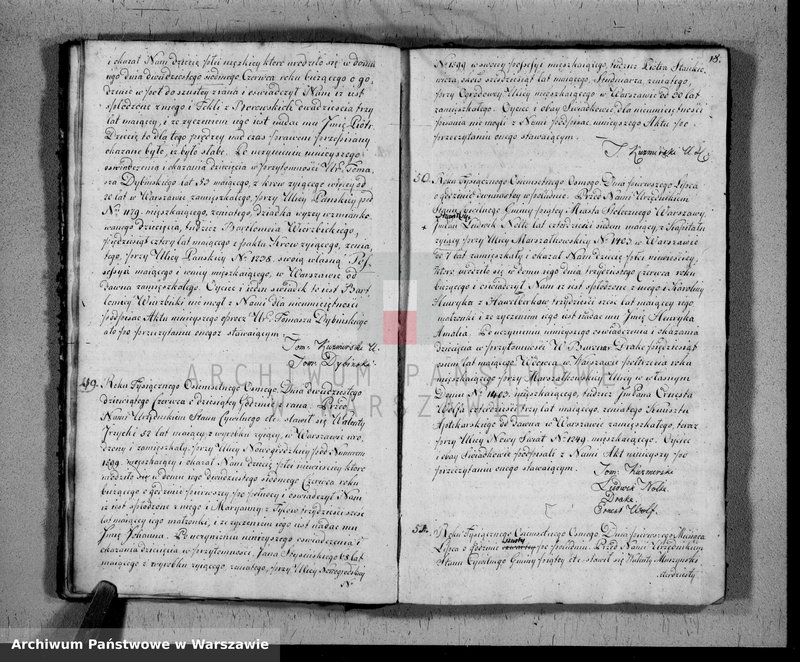 i okazał Nam dziecię płci męzkiey które urodziło się w domu
iego dnia dwudziestego siódmego Czerwca roku bieżącego o go
dzinie w pół do szóstey z rana i oświadczył Nam iż iest
spłodzone z niego i Tekli z dwadzieścia trzy
lat maiącey, i ze życzeniem iego iest nadać mu Jmię Piotr.
Dziecię to dla tego prędzey nad czas prawem przepisany
okazane było, iż było słabe. Po uczynieniu ninieyszego
oświadczenia i okazania dziecięcia w przytomności Ur. Toma
sza Dybińskiego lat 53 maiącego, z krow żyiącego więcey od
lat w Warszawie zamieszkałego, przy Ulicy Pańskiey pod
No 1179. mieszkaiącego, żonatego, dziadka wyżey wzmianko
wanego dziecięcia, tudzież Bartłomieia Wierbickiego,
pięćdziesiąt cztery lat maiącego z krow żyiącego, żona
tego, przy Ulicy Pańskiey No 1238. swoią własną Pos
sessyią maiącego i w niey mieszkaiącego, w Warszawie od
dawna zamieszkałego. Oyciec i ieden świadek to iest Bart
łomiey Wierbicki nie mogł z Nami dla nieumieiętności
podpisać Aktu ninieyszego oprócz Ur. Tomasza Dybińskiego
ale po przeczytaniu onegoż stawaiącym.
Tom. Kuzmirski U.
Tom. Dybiński
49. Roku Tysiącznego Ośmsetnego Osmego, Dnia dwudziestego
dziewiątego Czerwca o dziesiątey godzinie z rana. Przed
Nami Urzędnikiem Stanu Cywilnego etc. stawił się Walenty
52 lat maiący z wyrobku żyiący, w Warszawie uro
dzony i zamieszkały, przy Ulicy Nowogrodzkiey pod Numerem
1599 mieszkaiący i okazał Nam dziecię płci niewieściey które
urodziło się w domu iego dwudziestego siódmego Czerwca roku
bieżącego o godzinie pierwszey po północy i oświadczył Nam
iż iest spłodzone z niego i Maryanny z trzydzieści sześć
lat maiącey iego małżonki, i ze życzeniem iego iest nadać mu
Jmię Johanna. Po uczynieniu ninieyszego oświadczenia i
okazania dziecięcia w przytomności, Jana 48 lat
maiącego z wyrobku żyiącego, żonatego, przy Ulicy Nowogrodzkiey
N
18.
No 1599 w swoiey possessyi mieszkaiącego, tudzież Piotra Stankie
wicza, około sześćdziesiąt lat maiącego, Studniarza, żonatego,
przy Ogrodowey Ulicy mieszkaiącego w Warszawie od 30 lat
zamieszkałego. Oyciec i obay świadkowie dla nieumieiętności
pisania nie mogli z Nami podpisać ninieyszego Aktu po
przeczytaniu onego stawaiącym.
T. Kuzmirski U.
50. Roku Tysiącznego Ośmsetnego Osmego Dnia pierwszego Lipca
o godzinie dwunastey w południe. Przed Nami Urzędnikiem
Stanu Cywilnego Gminy piątey Miasta Stołecznego Warszawy,
Stawił się
Julian Ludwik Nolte lat czterdzieści siedem maiący, z Kapitału
żyiący przy Ulicy Marszałkowskiey No 1403 w Warszawie
od 7 lat zamieszkały i okazał Nam dziecię płci niewieściey,
które urodziło się w domu iego dnia trzydziestego Czerwca roku
bieżącego i oświadczył Nam iż iest spłodzone z niego i Karoliny
Henryki z trzydzieści sześć lat maiącey iego
małżonki i ze życzeniem iego iest nadać mu Jmię Henryka
Amalia. Po uczynieniu ninieyszego oświadczenia i okazania
dziecięcia w przytomności W. Drake pięćdziesiąt
osiem lat maiącego
przy Marszałkowskiey Ulicy w własnym
Domu No 1403. mieszkaiącego, tudzież Jm Pana Ernesta
Wolfa czterdzieści trzy lat maiącego, żonatego
Aptekarskiego od dawna w Warszawie zamieszkałego, teraz
przy Ulicy Nowy Świat No 1249. mieszkaiącego. Oyciec
i obay świadkowie podpisali z Nami Akt ninieyszy po
przeczytaniu onego stawaiącym.
Tom. Kuzmirski
Ludwik Nolte
Drake
Ernest Wolf.
51. Roku Tysiącznego Ośmsetnego Osmego Dnia pierwszego Miesiąca
Lipca o godzinie po południu. Przed Nami Urzędnikiem
Stanu Cywilnego Gminy piątey etc. stawił się Walenty
czterdziesty
ARCHIWUM PAŃSTWOWE
W WARSZAWIE
Archiwum Państwowe w Warszawie